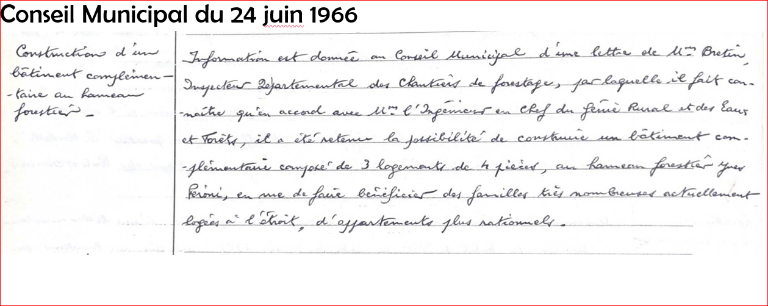 Conseil Municipal du 24 juin 1966
Construction d'un
bâtiment complémen-
-taire au hameau
forestier.-
Information est donnée au Conseil Municipal d'une lettre de Mr Bretin,
Inspecteur Départemental des Chantiers de forestage, par laquelle il fait con-
-naître qu'en accord avec Mr l'Ingénieur en Chef du Génie Rural et des Eaux
et Forêts, il a été retenu la possibilité de construire un bâtiment com-
-plémentaire composé de 3 logements de 4 pièces, au hameau forestier Yves
en vue de faire bénéficier des familles très nombreuses actuellement
logées à l'étroit, d'appartements plus rationnels.